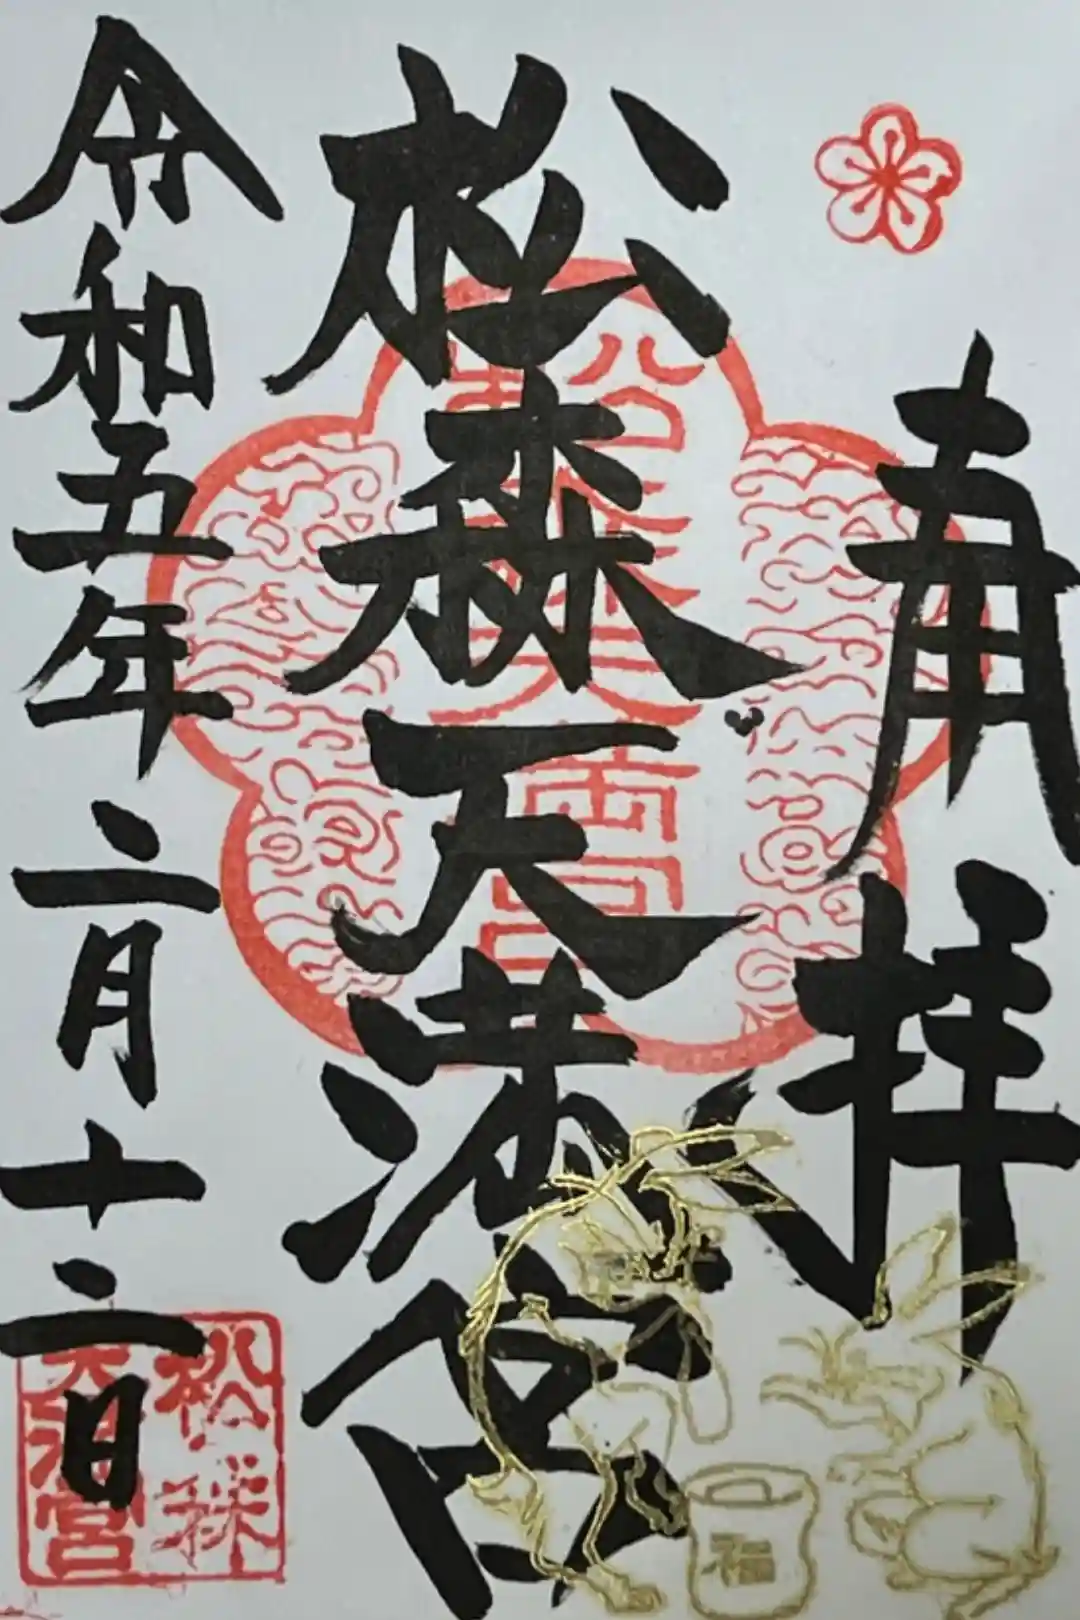 奉拝
松森天満宮
令和五年二月十二日
松森
天満宮
福